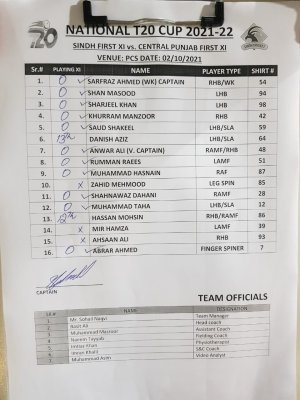 NATIONAL T20 CUP 2021-22
SINDH FIRST XI vs. CENTRAL PUNJAB FIRST XI
VENUE: PCS DATE: 02/10/2021
Sr.# PLAYING XI NAME PLAYER TYPE SHIRT #
1. O ✓ SARFRAZ AHMED (WK) CAPTAIN RHB/WK 54
2. O ✓ SHAN MASOOD LHB 94
3. O ✓ SHARJEEL KHAN LHB 98
4. O ✓ KHURRAM MANZOOR RHB 42
5. O ✓ SAUD SHAKEEL LHB/SLA 59
6. 13th DANISH AZIZ LHB/SLA 64
7. O ✓ ANWAR ALI (V. CAPTAIN) RAMF/RHB 48
8. O ✓ RUMMAN RAEES LAMF 51
9. O ✓ MUHAMMAD HASNAIN RAF 87
10. X ZAHID MEHMOOD LEG SPIN 85
11. O ✓ SHAHNAWAZ DAHANI RAMF 28
12. O ✓ MUHAMMAD TAHA LHB/SLA 12
13. 12th HASSAN MOHSIN RHB/RAMF 86
14. X MIR HAMZA LAMF 39
15. X AHSAAN ALI RHB 93
16. O ✓ ABRAR AHMED FINGER SPINER 7
CAPTAIN
TEAM OFFICIALS
SR # NAME DESIGNATION
1 Mr. Sohail Naqvi Team Manager
2 Basit Ali Head coach
3 Muhammad Masroor Assistant Coach
4 Naeem Tayyab Fielding Coach
5 Imtiaz Khan Physiotherapist
6 Imran Khalil S&C Coach
7 Muhammad Asim Video Analyst